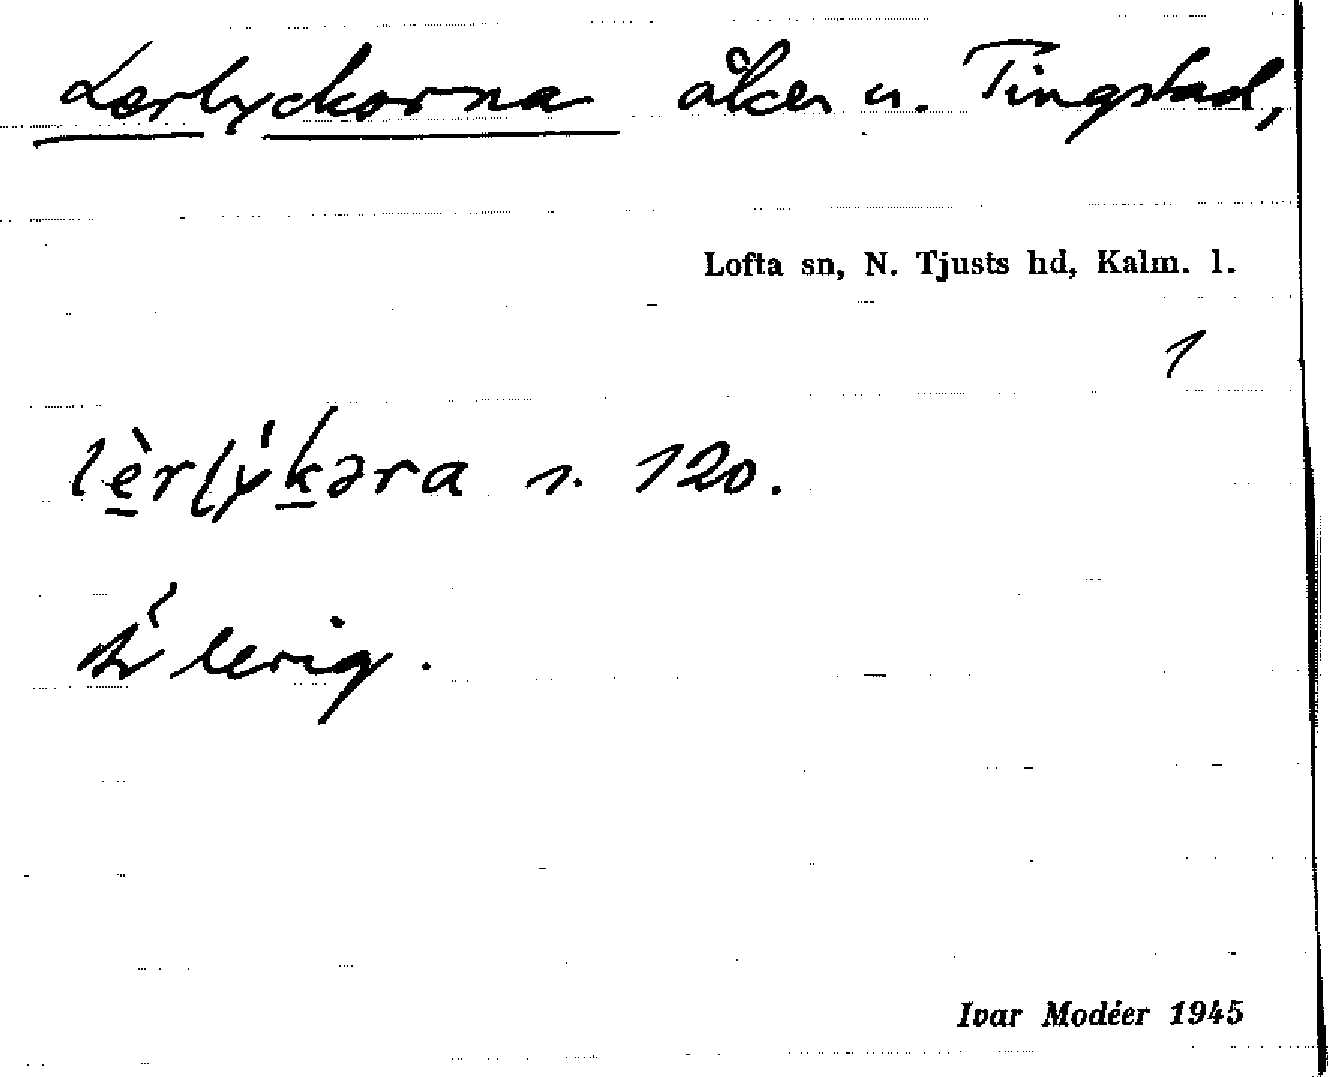 Lerlyckorna åker u. Tingstad,
Lofta sn, N. Tjusts hd, Kalm. l.
1
lèrlýkəra n. 120.
är lerig.
Ivar Modéer 1945